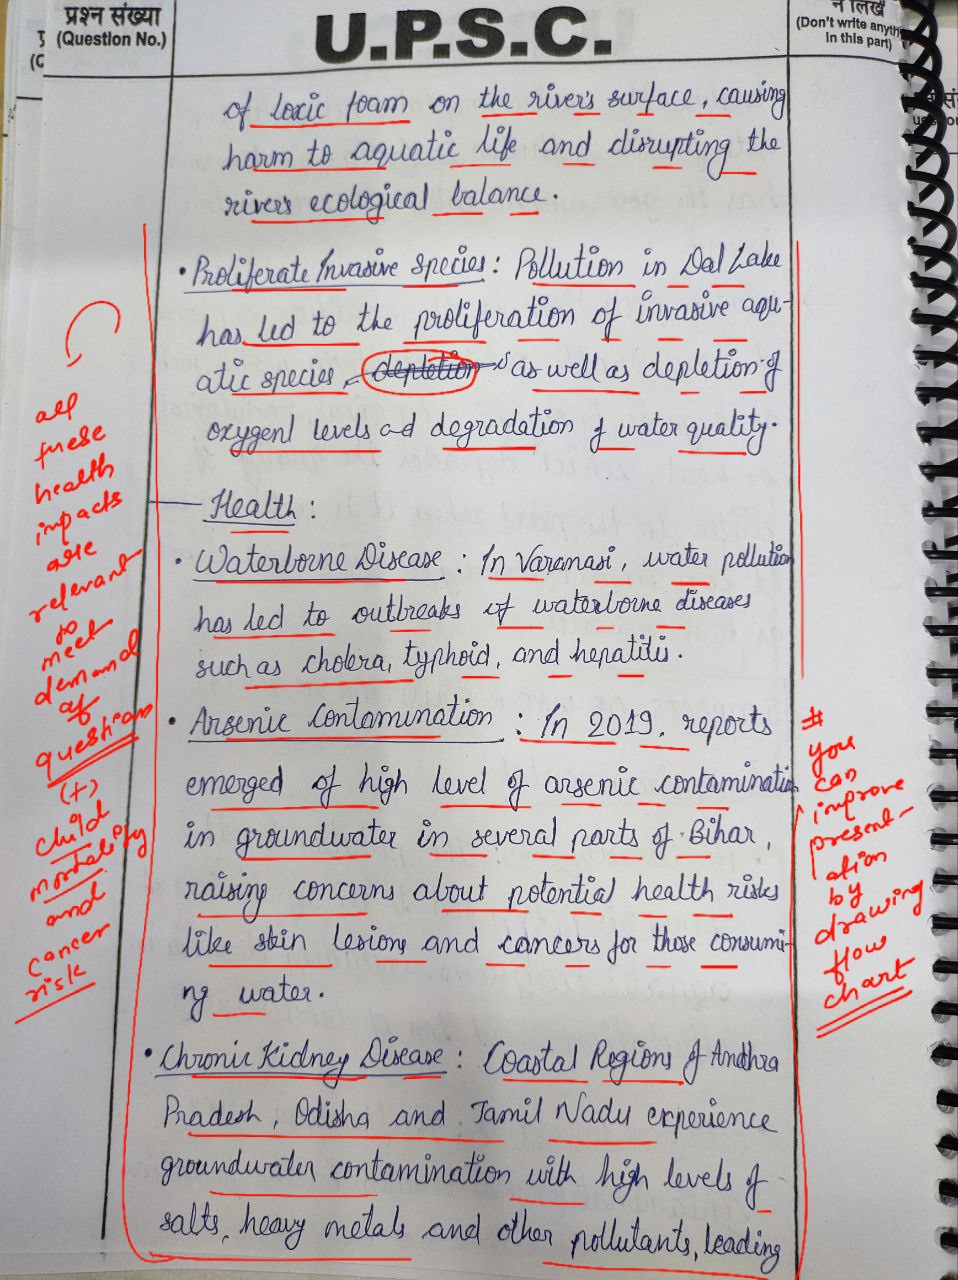 प्रश्न संख्या
(Question No.)
U.P.S.C.
न लिखें
(Don't write anyth
in this part)
of toxic foam on the river's surface, causing
harm to aquatic life and disrupting the
river's ecological balance.
• Proliferate Invasive Species : Pollution in Dal Lake
has led to the proliferation of invasive aqu-
atic species, depletion as well as depletion of
oxygent levels ad degradation of water quality.
Health :
• Waterborne Disease : In Varanasi, water pollution
has led to outbreaks of waterborne diseases
such as cholera, typhoid, and hepatitis.
• Arsenic Contamination : In 2019, reports
emerged of high level of arsenic contamination
in groundwater in several parts of Bihar,
raising concerns about potential health risks
like skin lesions and cancers for those consumi-
ng water.
• Chronic Kidney Disease : Coastal Regions of Andhra
Pradesh, Odisha and Tamil Nadu experience
groundwater contamination with high levels of
salts, heavy metals and other pollutants, leading
all
these
health
impacts
are
relevant
to
meet
demand
of
question
(+)
child
mortality
and
cancer
risk
#
you
can
improve
present-
ation
by
drawing
flow
chart